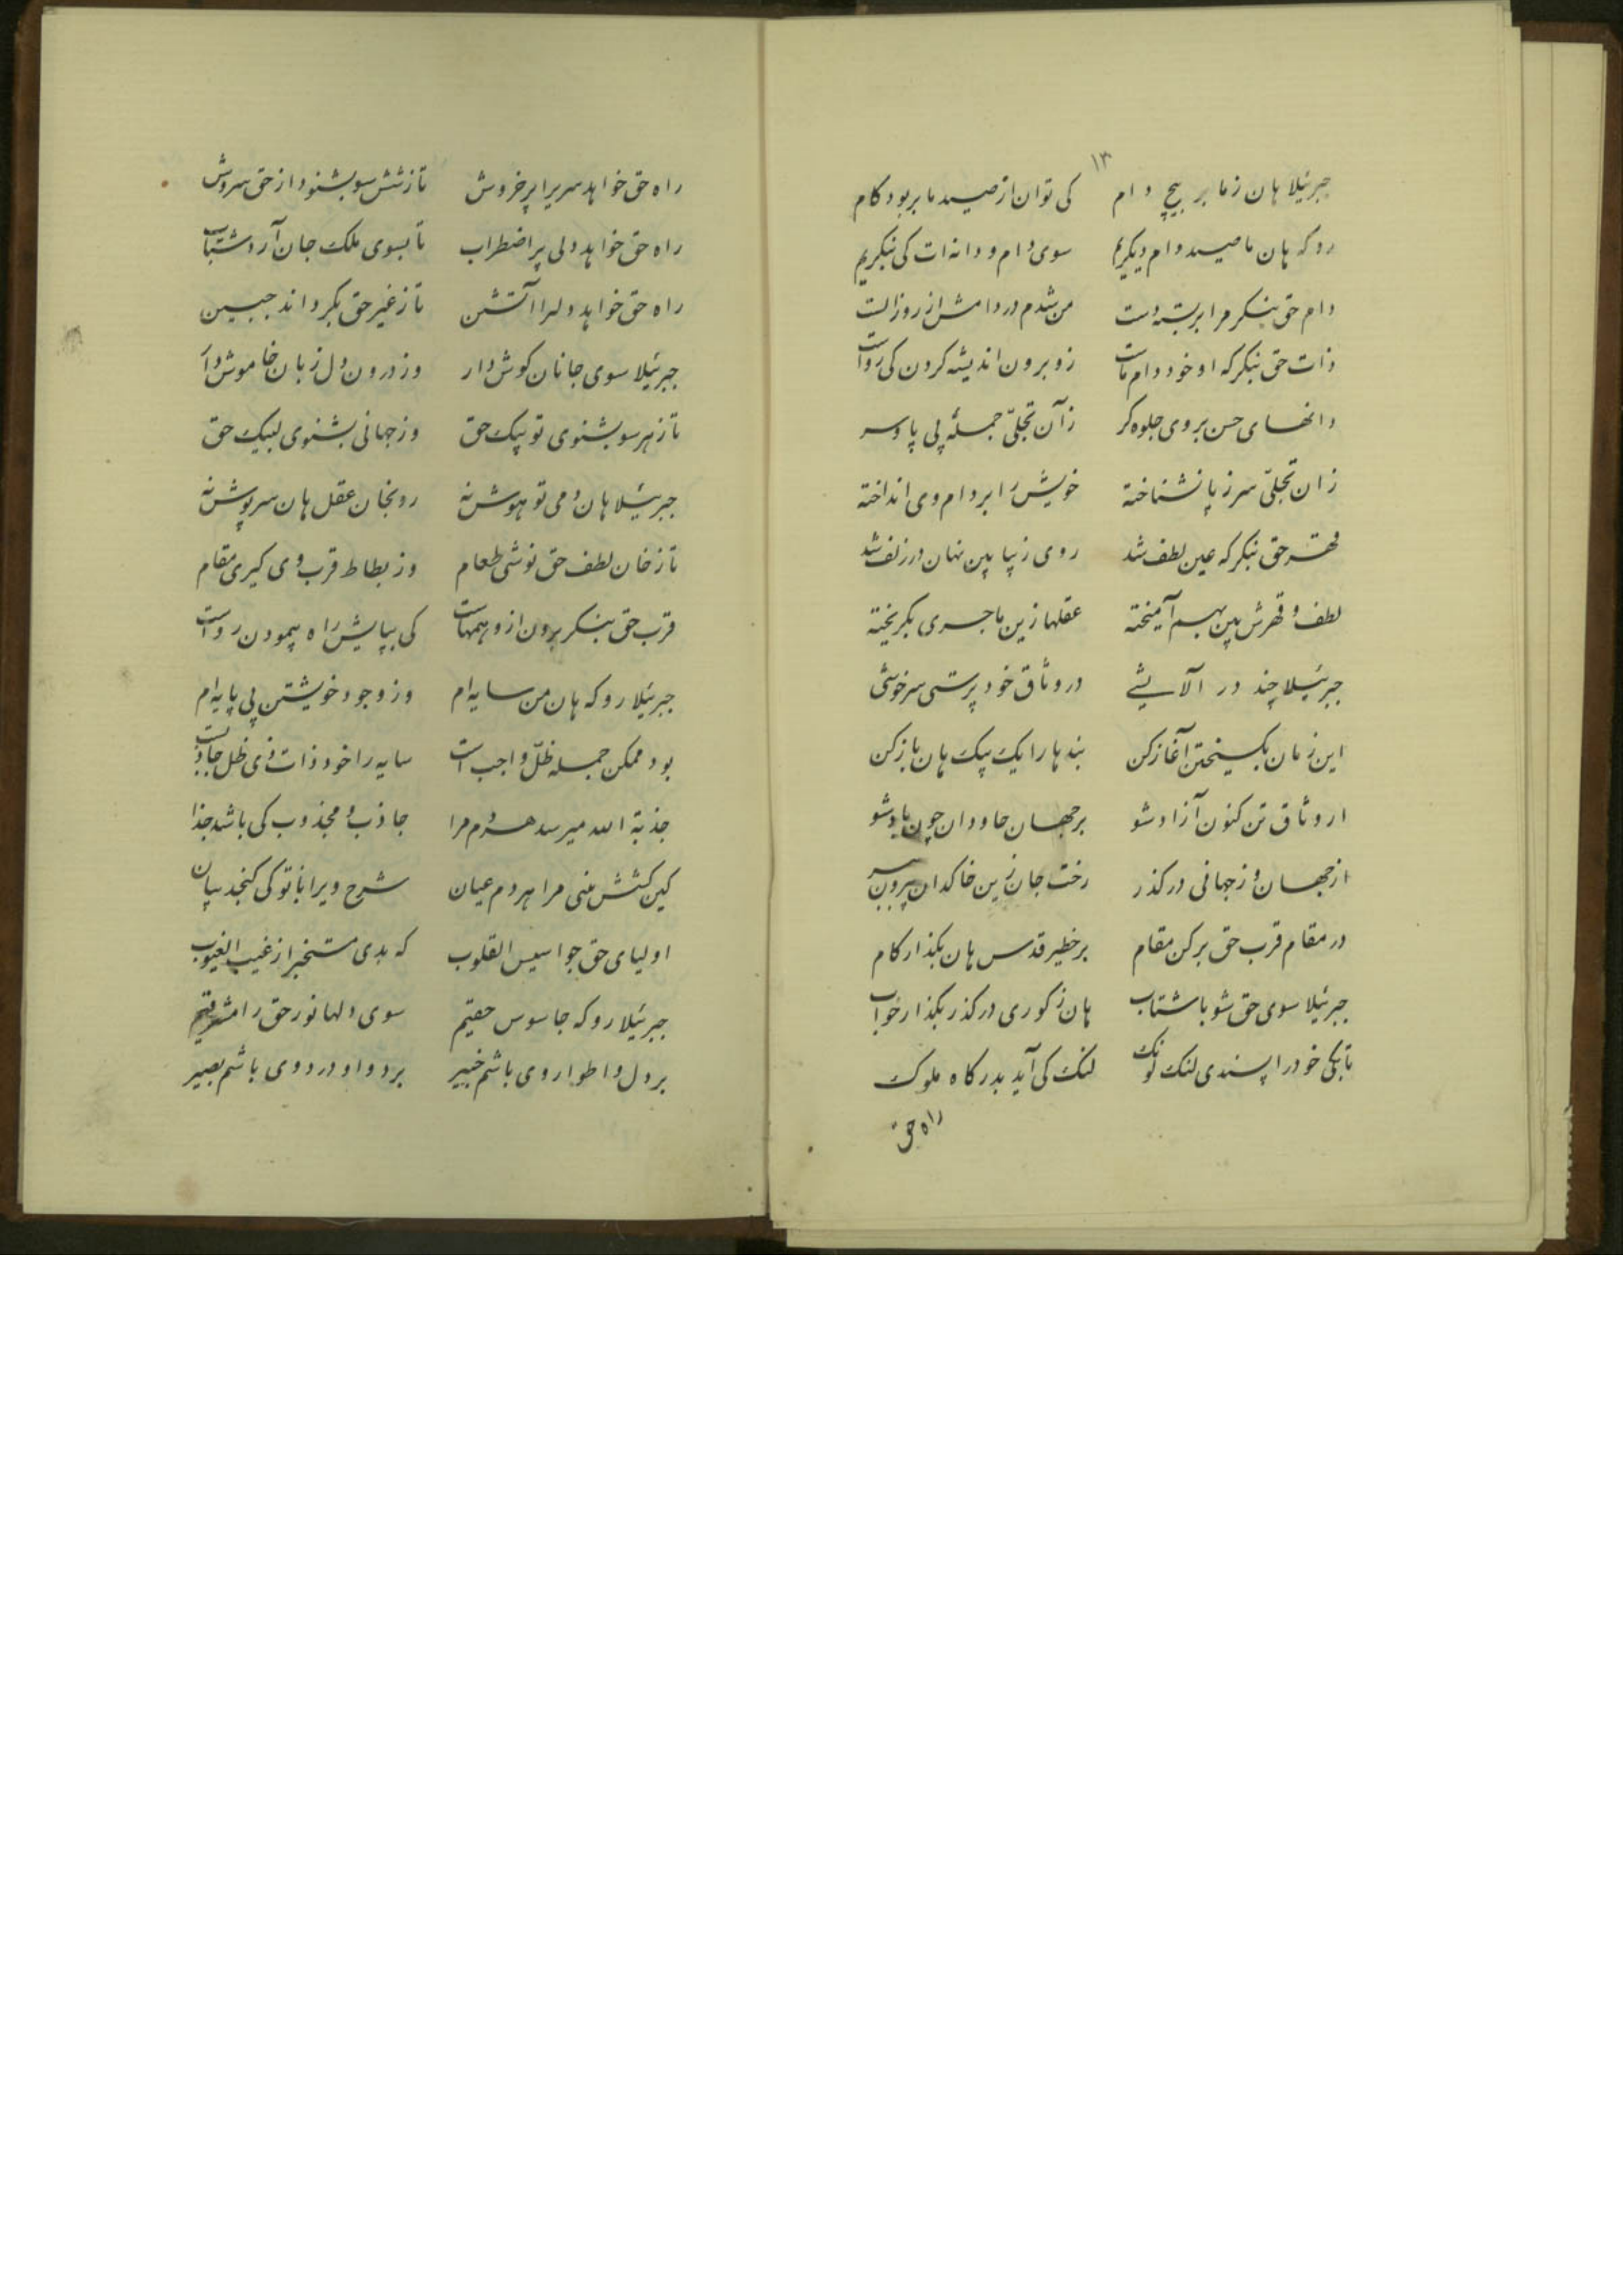 ۱۳
جبرئیلا هان ز ما بر پیچ دام کی توان از صید ما بربود کام
رو که هان ما صید دام دیگریم سوی دام و دانه‌ات کی بنگریم
دام حق بنگر مرا بربسته دست من شدم در دامش از روز الست
ذات حق بنگر که او خود دام ماست زو برون اندیشه کردن کی رواست
دانهای حسن بروی جلوه کر زآن تجلّی جمله پی پا و سر
زان تجلّی سر ز پا نشناخته خویش را بر دام وی انداخته
قهر حق بنگر که عین لطف شد روی زیبا بین نهان در زلف شد
لطف و قهرش بین بهم آمیخته عقلها زین ماجری بگریخته
جبرئیلا چند در آلایشے در وثاق خود پرستی سرخوشی
این زمان بگسیختن آغاز کن بندها را یک بیک هان باز کن
از وثاق تن کنون آزاد شو بر جهان جاودان چون باد شو
از جهان و ز جهانی درگذر رخت جان زین خاکدان بیرون ببر
در مقام قرب حق برکن مقام بر خطیر قدس هان بگذار کام
جبرئیلا سوی حق شو باشتاب هان ز کوری درگذر بگذار خواب
تا بکی خود را پسندی لنک لوک لنک کی آید بدرکاه ملوک
راه حق
راه حق خواهد سریرا پر خروش تا ز شش سو بشنود از حق سروش
راه حق خواهد دلی پر اضطراب تا بسوی ملک جان آرد شتاب
راه حق خواهد دلرا آتشین تا ز غیر حق بگرداند جبین
جبرئیلا سوی جانان کوش دار وز درون دل زبان خاموش دار
تا ز هر سو بشنوی تو پیک حق وز جهانی بشنوی لبیک حق
جبرئیلا هان دمی تو هوش نه رو بخان عقل هان سرپوش نه
تا ز خان لطف حق نوشی طعام وز بطاط قرب وی کیری مقام
قرب حق بنگر برون از وهمهاست کی بپایش راه پیمودن رواست
جبرئیلا رو که هان من سایه‌ام وز وجود خویشتن بی پایه‌ام
بود ممکن جمله ظلّ واجب است سایه را خود ذات ذی ظل جاذبست
جذبة الله میرسد هردم مرا جاذب و مجذوب کی باشد جدا
کین کشش بنی مرا هر دم عیان شرح ویرا با تو کی کنجد بیان
اولیای حق جواسیس القلوب که بدی مستخبر از غیب الغیوب
جبرئیلا رو که جاسوس حقیم سوی دلها نور حق را مشرقیم
بر دل و اطوار وی باشم خبیر بر دوا و درد وی باشم بصیر